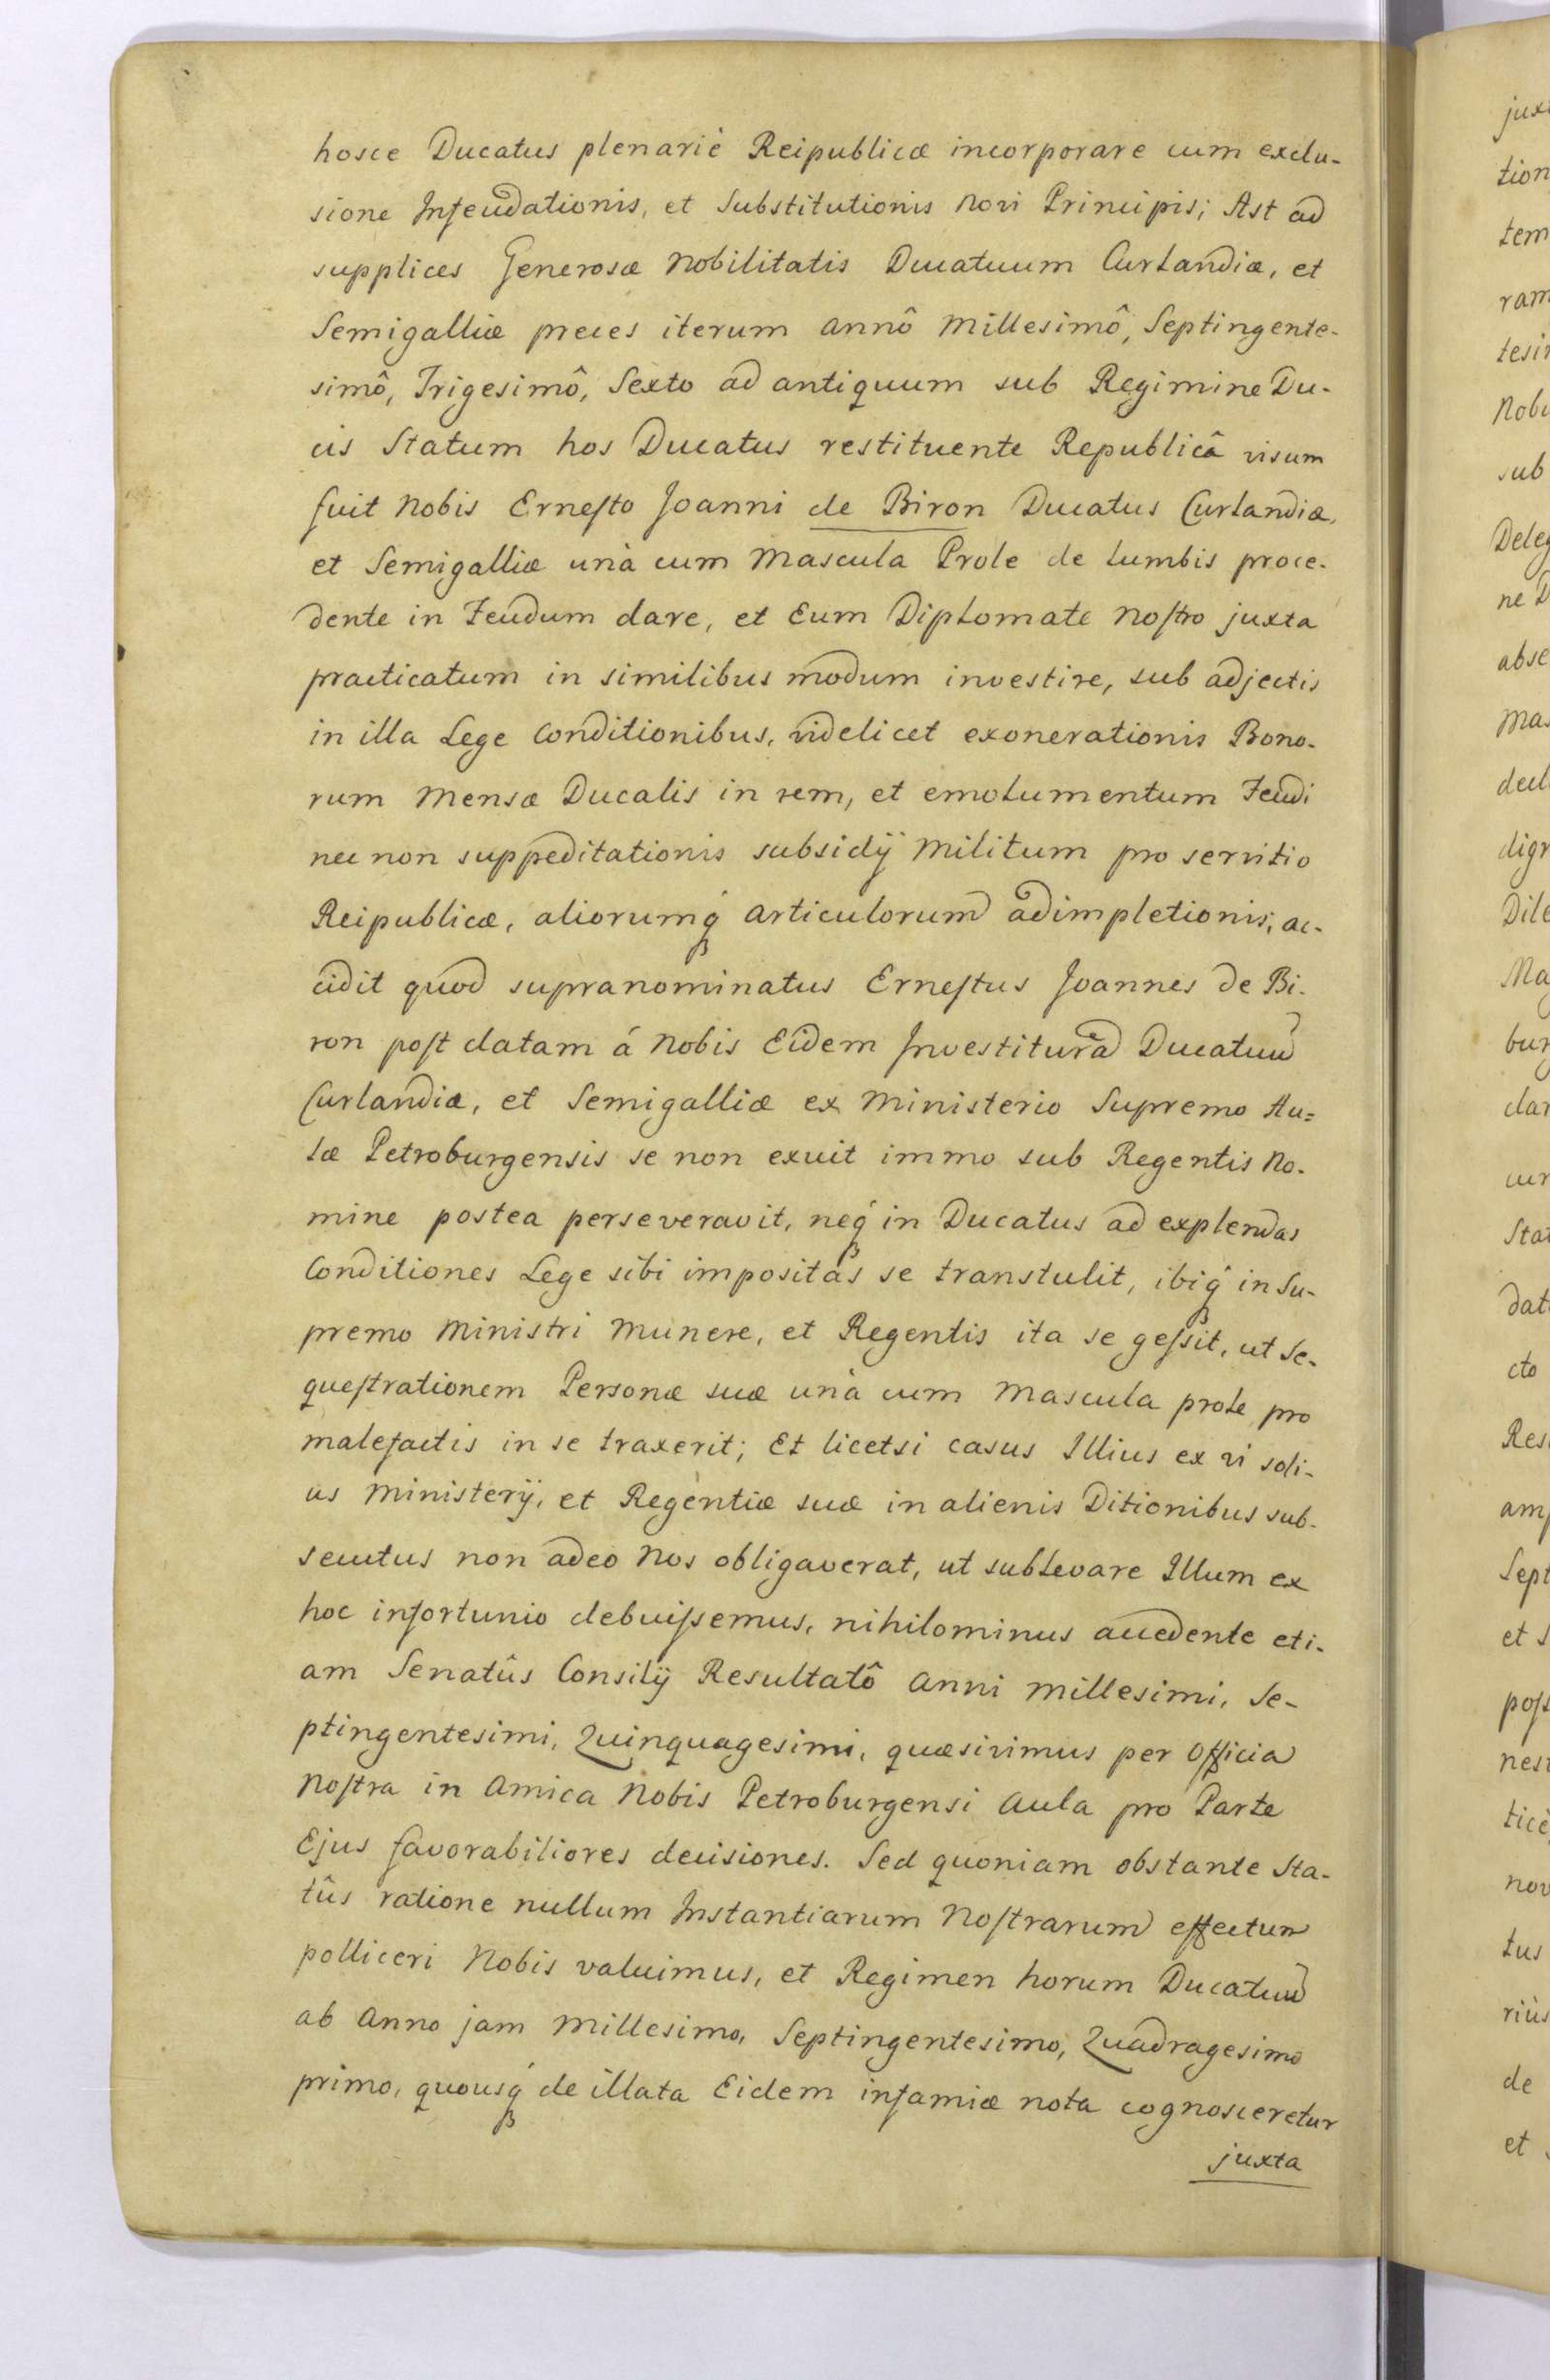 hosce Ducatus plenariè Reipublicæ incorporare cum exclu-
sione Infeudationis, et Substitutionis Novi Principis; Ast ad
supplices Generosæ Nobilitatis Ducatuum Curlandiæ, et
Semigalliæ preces iterum Annô Millesimô, Septingente-
simô, Trigesimô, Sexto ad antiquum sub Regimine Du-
cis Statum hos Ducatus restituente Republicâ visum
fuit Nobis Erneſto Joanni de Biron Ducatus Curlandiæ,
et Semigalliæ unà cum Mascula Prole de lumbis proce-
dente in Feudum dare, et Eum Diplomate Noſtro juxta
practicatum in similibus modum investire, sub adjectis
in illa Lege Conditionibus, videlicet exonerationis Bono-
rum Mensæ Ducalis in rem, et emolumentum Feudi
nec non suppeditationis subsidÿ Militum pro servitio
Reipublicæ, aliorumq́ Articulorum adimpletionis; ac-
cidit quod supranominatus Erneſtus Joannes de Bi-
ron poſt datam á Nobis Eidem Investiturã Ducatuũ
Curlandiæ, et Semigalliæ ex Ministerio Supremo Au=
læ Petroburgensis se non exuit immo sub Regentis No-
mine postea perseveravit, neq́ in Ducatus ad explendas
Conditiones Lege sibi impositas se transtulit, ibiq́ in Su-
premo Ministri Munere, et Regentis ita se geſsit, ut Se-
queſtrationem Personæ suæ unà cum Mascula prole pro
malefactis in se traxerit; Et licetsi casus Illius ex vi soli-
us Ministerÿ, et Regentiæ suæ in alienis Ditionibus sub-
secutus non adeo Nos obligaverat, ut sublevare Illum ex
hoc infortunio debuiſsemus, nihilominus accedente eti-
am Senatûs Consilÿ Resultatô Anni Millesimi, Se-
ptingentesimi, Quinquagesimi, quæsivimus per Officia
Noſtra in Amica Nobis Petroburgensi Aula pro Parte
Ejus favorabiliores decisiones. Sed quoniam obstante Sta-
tûs ratione nullum Instantiarum Noſtrarum effectum
polliceri Nobis valuimus, et Regimen horum Ducatuũ
ab Anno jam Millesimo, Septingentesimo, Quadragesimo
primo, quousq́ de illata Eidem infamiæ nota cognosceretur
juxta